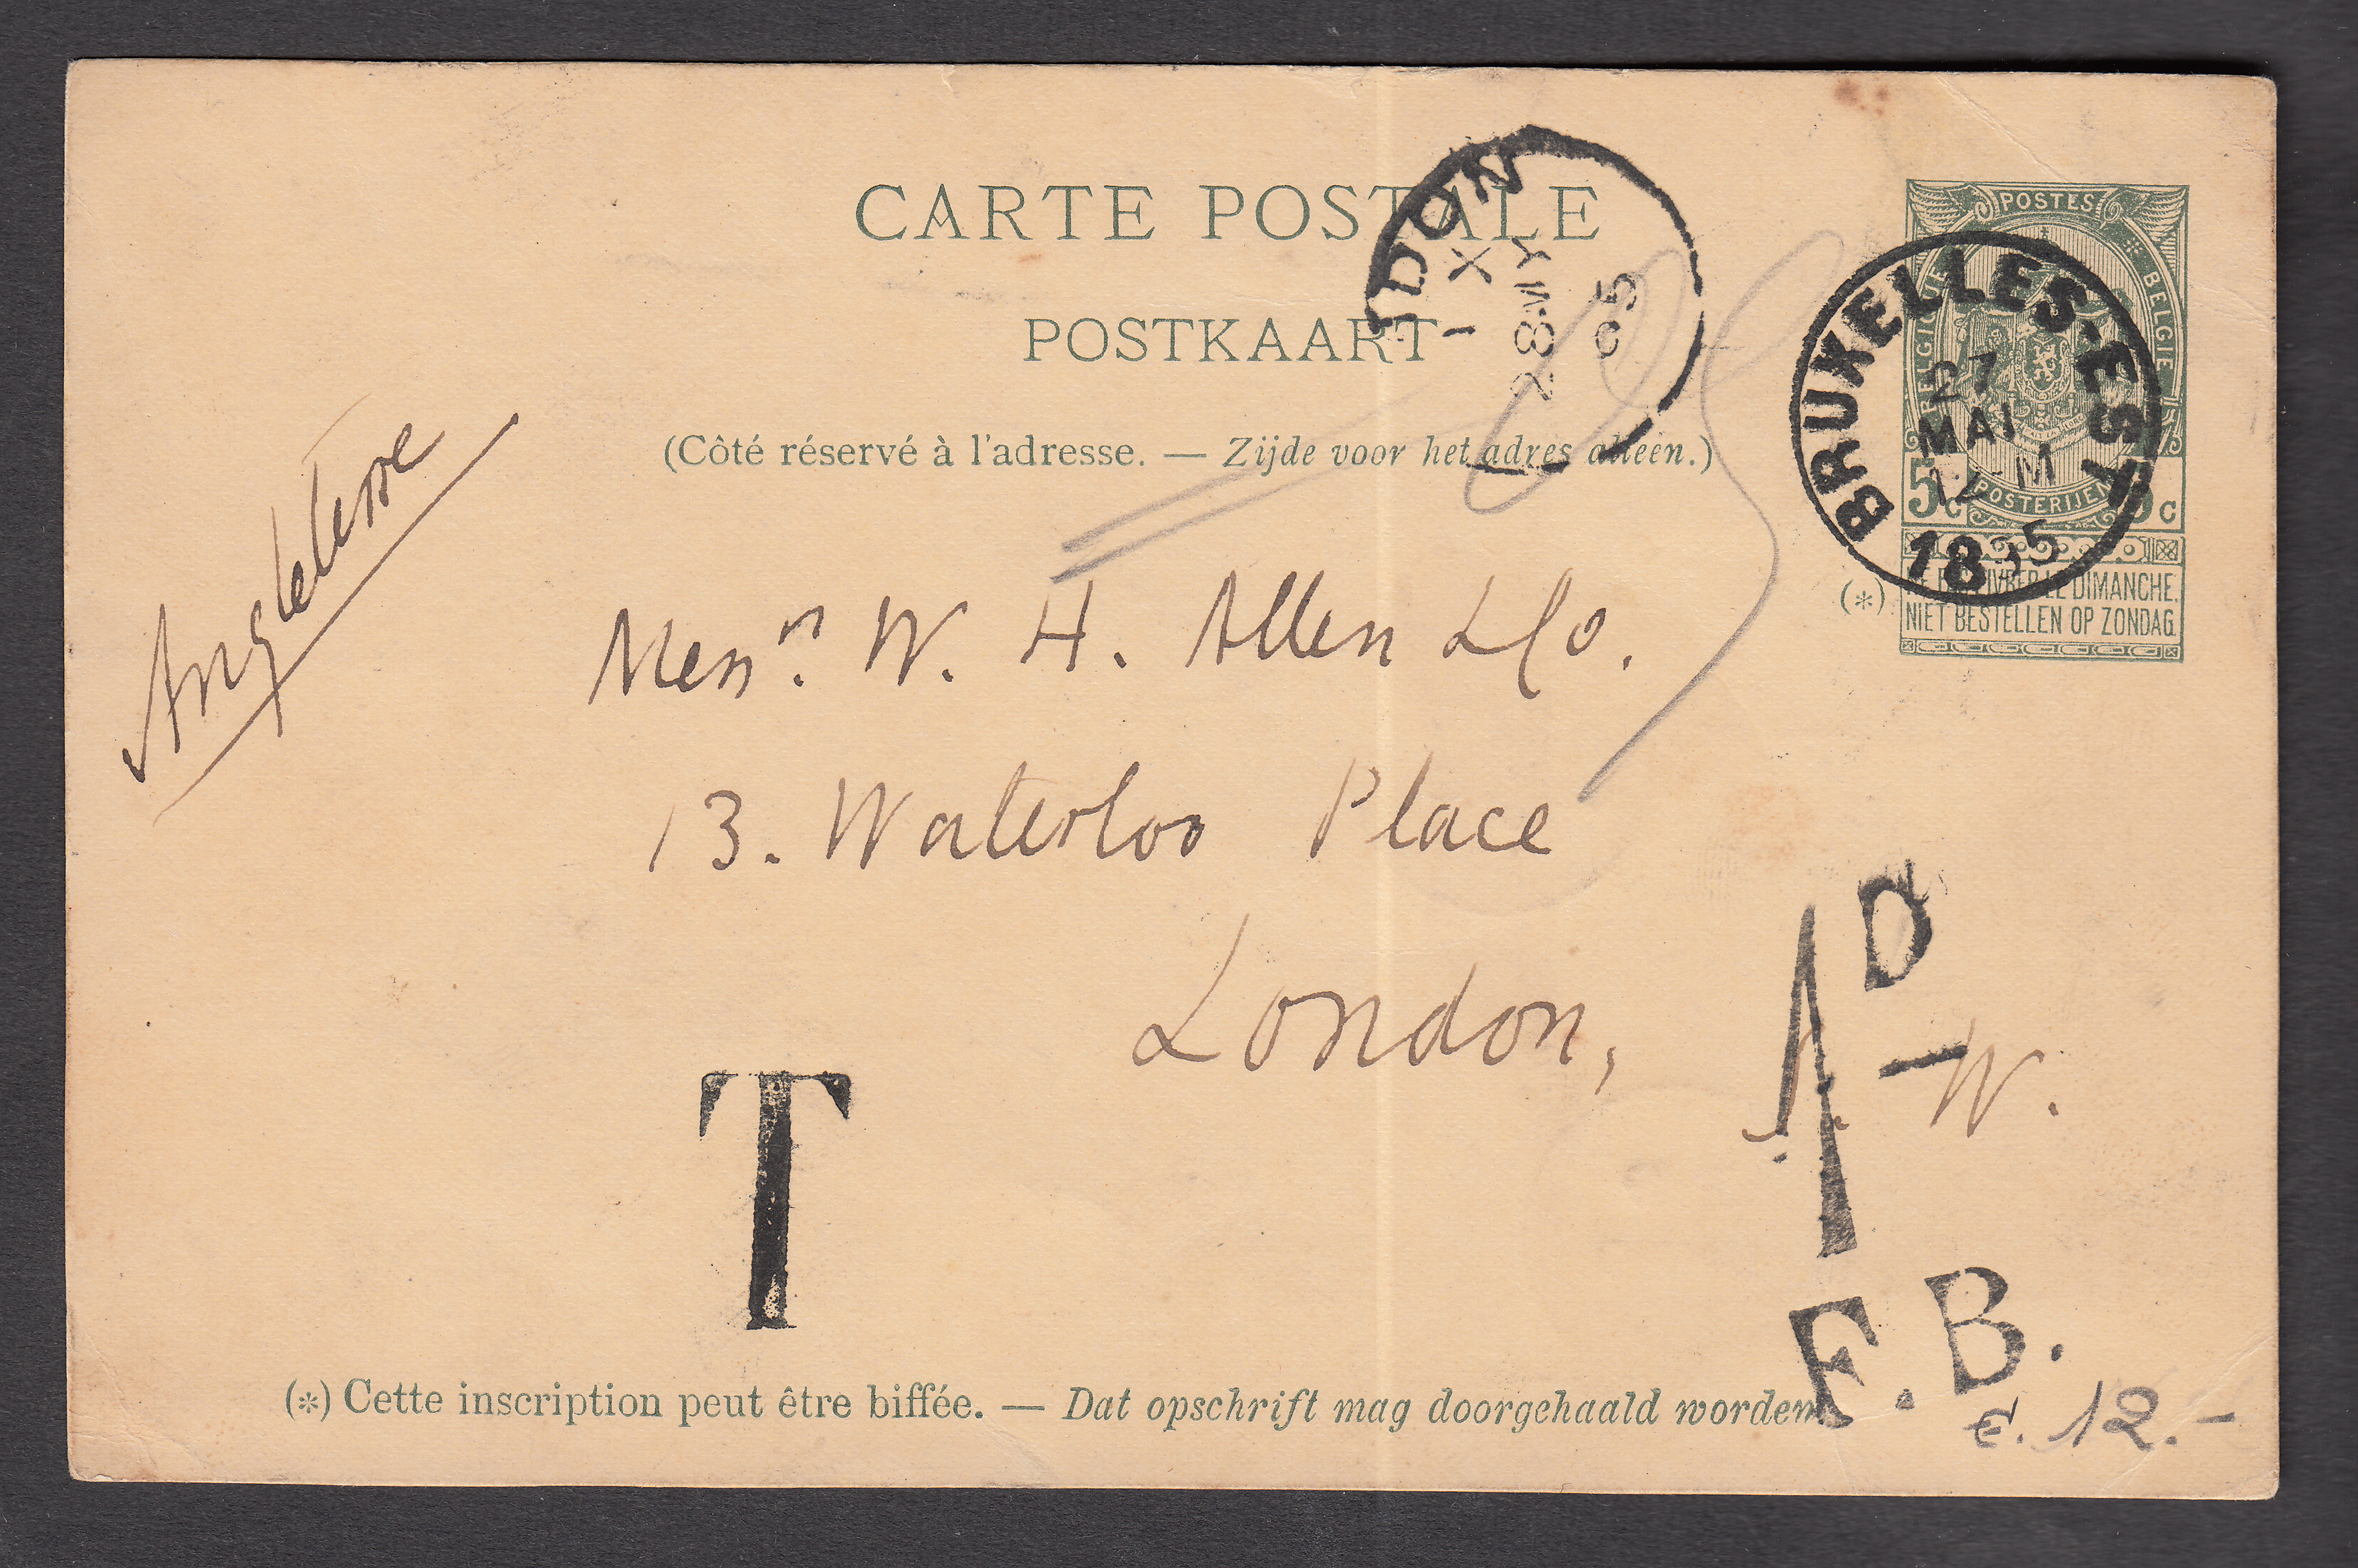 CARTE POSTALE
POSTKAART
(Côté réservé à l'adresse. — Zijde voor het adres alleen.)
POSTES
BELGIQUE
BELGIE
5c
POSTERIJEN
5c
DIMANCHE.
NIET BESTELLEN OP ZONDAG.
(*)
BRUXELLES-EST
27
MAI
12-M
1895
DON
X
28 MY
95
Angleterre
Messrs. W. H. Allen & Co.
13. Waterloo Place
London,
W.
T
1D
F.B.
(*) Cette inscription peut être biffée. — Dat opschrift mag doorgehaald worden
€. 12.-